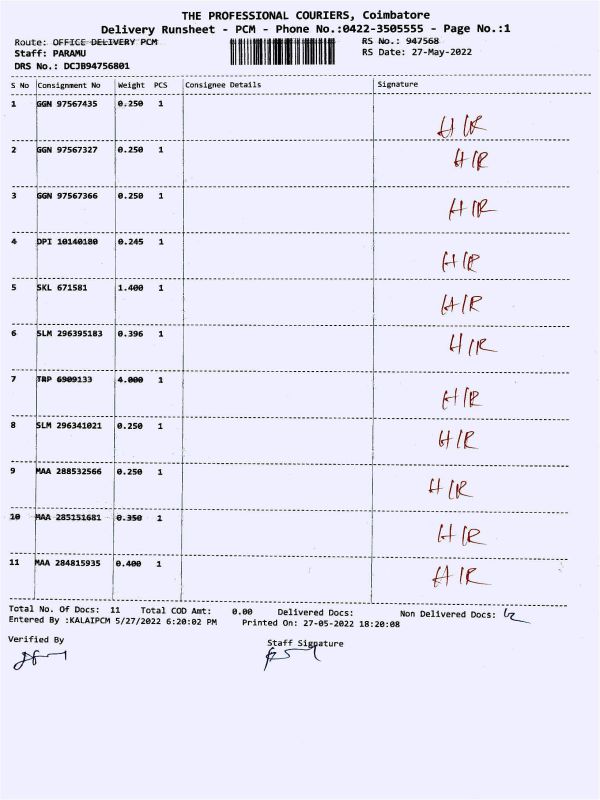 THE PROFESSIONAL COURIERS, Coimbatore
Delivery Runsheet - PCM - Phone No.:0422-3505555 - Page No.:1
Route: OFFICE DELIVERY PCM RS No.: 947568
Staff: PARAMU RS Date: 27-May-2022
DRS No.: DCJB94756801
S No Consignment No Weight PCS Consignee Details Signature
1 GGN 97567435 0.250 1 H/R
2 GGN 97567327 0.250 1 H/R
3 GGN 97567366 0.250 1 H/R
4 DPI 10140180 0.245 1 H/R
5 SKL 671581 1.400 1 H/R
6 SLM 296395183 0.396 1 H/R
7 TRP 6909133 4.000 1 H/R
8 SLM 296341021 0.250 1 H/R
9 MAA 288532566 0.250 1 H/R
10 MAA 285151681 0.350 1 H/R
11 MAA 284815935 0.400 1 H/R
Total No. Of Docs: 11 Total COD Amt: 0.00 Delivered Docs: Non Delivered Docs:
Entered By :KALAIPCM 5/27/2022 6:20:02 PM Printed On: 27-05-2022 18:20:08
Verified By Staff Signature